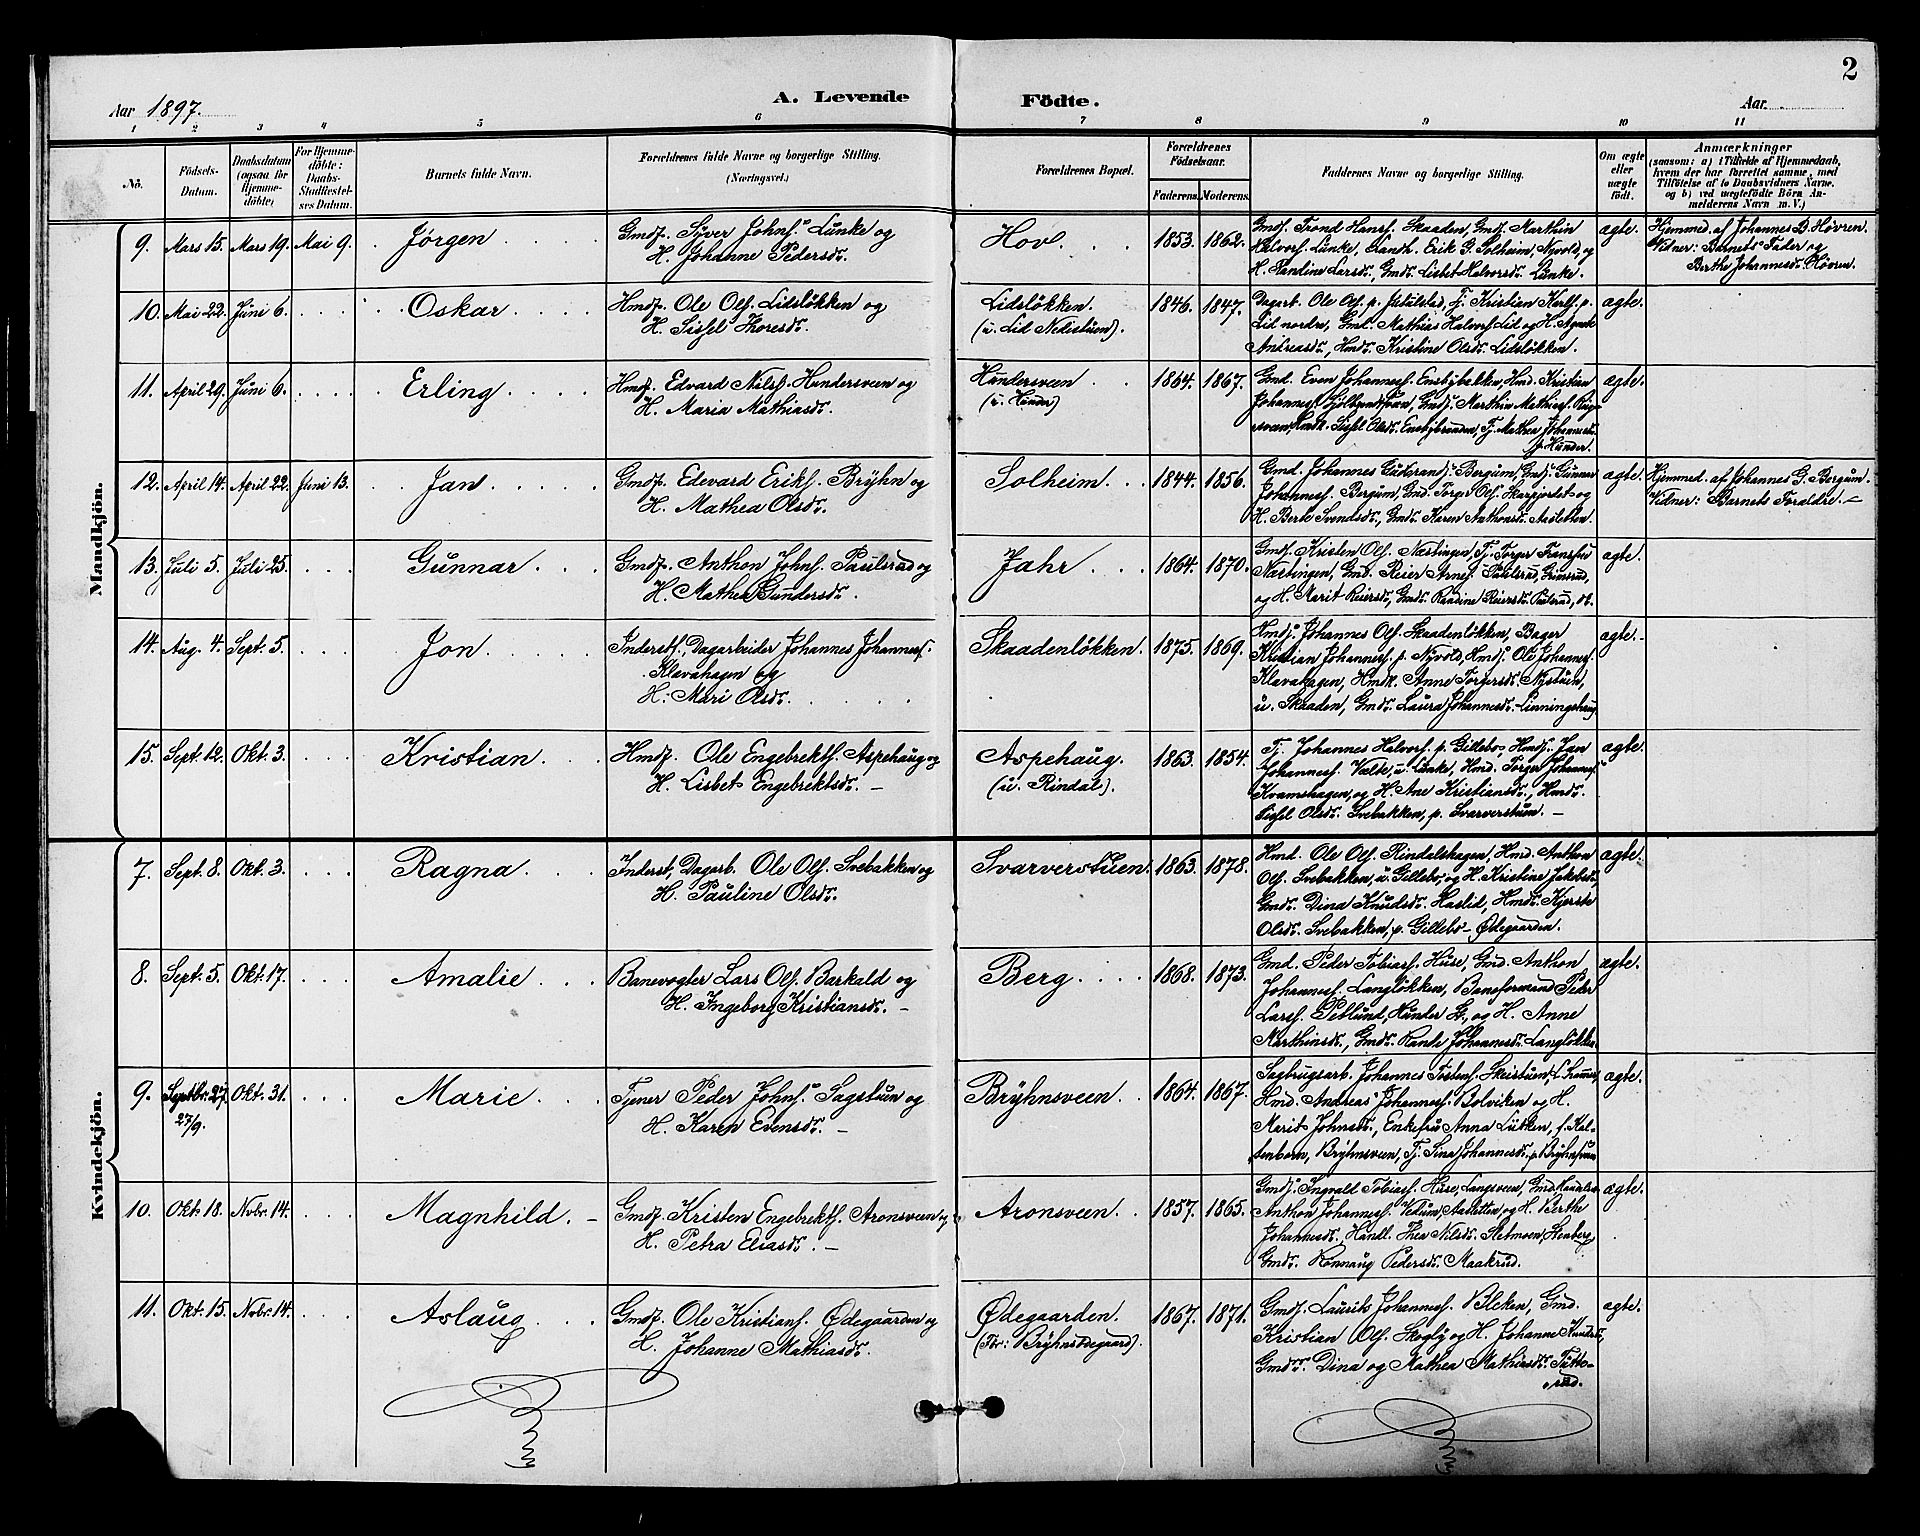 2
Aar 1897.
A. Levende Födte.
Aar
1 2 3 4 5 6 7 8 9 10 11
No.
Födsels-Datum.
Daabsdatum (ogsaa for Hjemme-döbte)
For Hjemme-döbte: Daabs-Stadfæstel-ses Datum.
Barnets fulde Navn.
Forældrenes fulde Navne og borgerlige Stilling. (Næringsvei.)
Forældrenes Bopæl.
Forældrenes Födselsaar.
Faderens. Moderens.
Faddernes Navne og borgerlige Stilling.
Om ægte eller uægte födt.
Anmærkninger
(saasom: a) i Tilfælde af Hjemmedaab, hvem der har forrettet samme, med Tilföielse af to Daabsvidners Navne. og b) ved uægtefödte Börn An-melderens Navn m. V.)
Mandkjön.
9. Mars 15. Mars 19. Mai 9. Jørgen
Gmdf. Syver Johnsˢ Lunke og
H. Johanne Pedersdr.
Hov. 1853. 1862.
Gmdf. Trond Hansf. Skaaden, Gmd. Marthin
Halvorsf. Lunke, Erik G. Solheim, Nyvold, og
H. Pandine Larsdr., Gmdr. Lisbet Halvorsdr. Lunke.
ægte.
Hjemmed. af Johannes B. Høvren.
Vidner: Barnets Fader og
Berthe Johannesdr. Høvren.
10. Mai 22. Juni 6. Oskar
Hmdf. Ole Olf. Lidsløkken og
H. Sissel Thoresdr.
Lidsløkken.
(u. Lid Nedistuen).
1846. 1847.
Dagarb. Ole Olf. p. Tj. Kristian Karlf. p.
Lid nordre, Gmd. Mathias Halvorsf. Lid og H. Agnete
Andreasdr., Hmdr. Kristine Olsdr. Lidsløkken.
ægte.
11. April 29. Juni 6. Erling
Hmdf. Edvard Nilsf. Hundersveen og
H. Maria Mathiasdr.
Hundersveen
(u. Hunder)
1864. 1867.
Gmd. Even Johannesf. Ensbybakken, Hmd. Kristian
Johannesf. Gmdf. Marthin Mathisf.
Sissel Olsdr. Ensbybraaden, Tj. Mathea Johannesdr.
p. Hunder.
ægte.
12. April 14. April 22. Juni 13. Jan
Gmdf. Edevard Erikf. Brÿhn og
H. Mathea Olsdr.
Solheim 1844. 1856.
Gmd. Johannes Gudbrandf. Bergum, Gmdf. Gunnar
Johannesf. Bergum, Gmd. Torger Olf. Skarfjordet og
H. Berte Svendsdr., Gmdr. Karen Anthonsdr. Aasletten.
ægte.
Hjemmed. af Johannes G. Bergum.
Vidner: Barnets Forældre. –
13. Juli 5. Juli 25. Gunnar
Gmdf. Anthon Johnf. Paulsrud og
H. Mathea Gundersdr.
Jahr 1864. 1870.
Gmdf. Kristen Olf. Næstingen, Tj. Torger
Næstingen, Gmd. Reier Arnef. Paulsrud, Grimsrud,
og H. Marit Reiersdr., Gmdr. Randine Reiersdr. Paulsrud, do.
ægte.
14. Aug. 4. Sept. 5. Jon
Inderstf., Dagarbeider Johannes Johannesf.
Klavahagen og
H. Mari Olsdr.
Skaadenløkken. 1875. 1869.
Hmdf. Johannes Olf. Skaadenløkken, Bager
Kristian Johannesf. p. Nyvold, Hmdf. Ole Johannesf.
Klavahagen, Hmdk. Anne Torgersdr. Nystuen,
u. Skaaden, Gmdr. Laura Johannesdr. Linningshaug
ægte.
15. Sept. 12. Okt. 3. Kristian
Hmdf. Ole Engebrektf. Aspehaug og
H. Lisbet Engebrektsdr. –
Aspehaug.
(u. Rindal).
1863. 1854.
Tj. Johannes Halvorsf. p. Gillebo, Hmdf. Jan
Johannesf. Vælte, u. Lunke, Hmd. Torger Johannesf.
Kvamshagen, og H. Ane Kristiansdr., Hmdr.
Sissel Olsdr. Svebakken, p. Svarverstuen. –
ægte.
Kvindekjön.
7. Sept. 8. Okt. 3. Ragna
Inderst, Dagarb. Ole Olf. Svebakken og
H. Pauline Olsdr.
Svarverstuen. 1863. 1878.
Hmd. Ole Olf. Rindalshagen, Hmd. Anthon
Olf. Svebakken, u. Gillebo, og H. Kristine Jakobsdr.
Gmdr. Dina Knudsdr. Haslid, Hmdr. Kjerste
Olsdr. Svebakken, p. Gillebo-Ødegaarden.
ægte.
8. Sept. 5. Okt. 17. Amalie
Banevogter Lars Olf. Barkald og
H. Ingeborg Kristiansdr. –
Berg 1868. 1873.
Gmd. Peder Tobiasf. Huse, Gmd. Anthon
Johannesf. Langløkken, Baneformand Peder
Larsf. Peblund, Hunder St., og H. Anne
Marthinsdr., Gmdr. Rante Johannesdr. Langløkken
ægte.
9. Septbr. 27. 27/9. Okt. 31. Marie
Tjener Peder Johnsˢ Sagstuen og
H. Karen Evensdr. –
Brÿhnsveen 1864. 1867.
Sagbrugsarb. Johannes Tostenf. Skeistuen,
Hmd. Andreas Johannesf. Bolviken og H.
Marit Johnsdr., Enkefru Anna Lütken, f. Kal-
tenborn, Brÿhnsveen, Tj. Sina Johannesdr. p. Brÿhnsveen
ægte.
10. Okt. 18. Novbr. 14. Magnhild. –
Gmdf. Kristen Engebrektf. Aronsveen og
H. Petra Eliasdr. –
Aronsveen 1857. 1865.
Gmdf. Ingvald Tobiasf. Huse, Langsveen, Gmd.
Anthon Johannesf. Vedum, Aasletten og H. Berthe
Johannesdr., Handl. Thea Nilsdr. Hetmoen, Stenberg
Gmdr. Rønnaug Pedersdr. Maakrud.
ægte.
11. Okt. 15. Novbr. 14. Aslaug
Gmdf. Ole Kristianf. Ødegaarden og
H. Johanne Mathiasdr.
Ødegaarden.
(For: Brÿhnsødegaard).
1867. 1871.
Gmdf. Laurits Johannesf. Bleken, Gmd.
Kristian Olf. Skogly og H. Johanne Knudsdr.,
Gmdr. Dina og Mathea Mathiasdr. Tutte-
rud.
ægte.